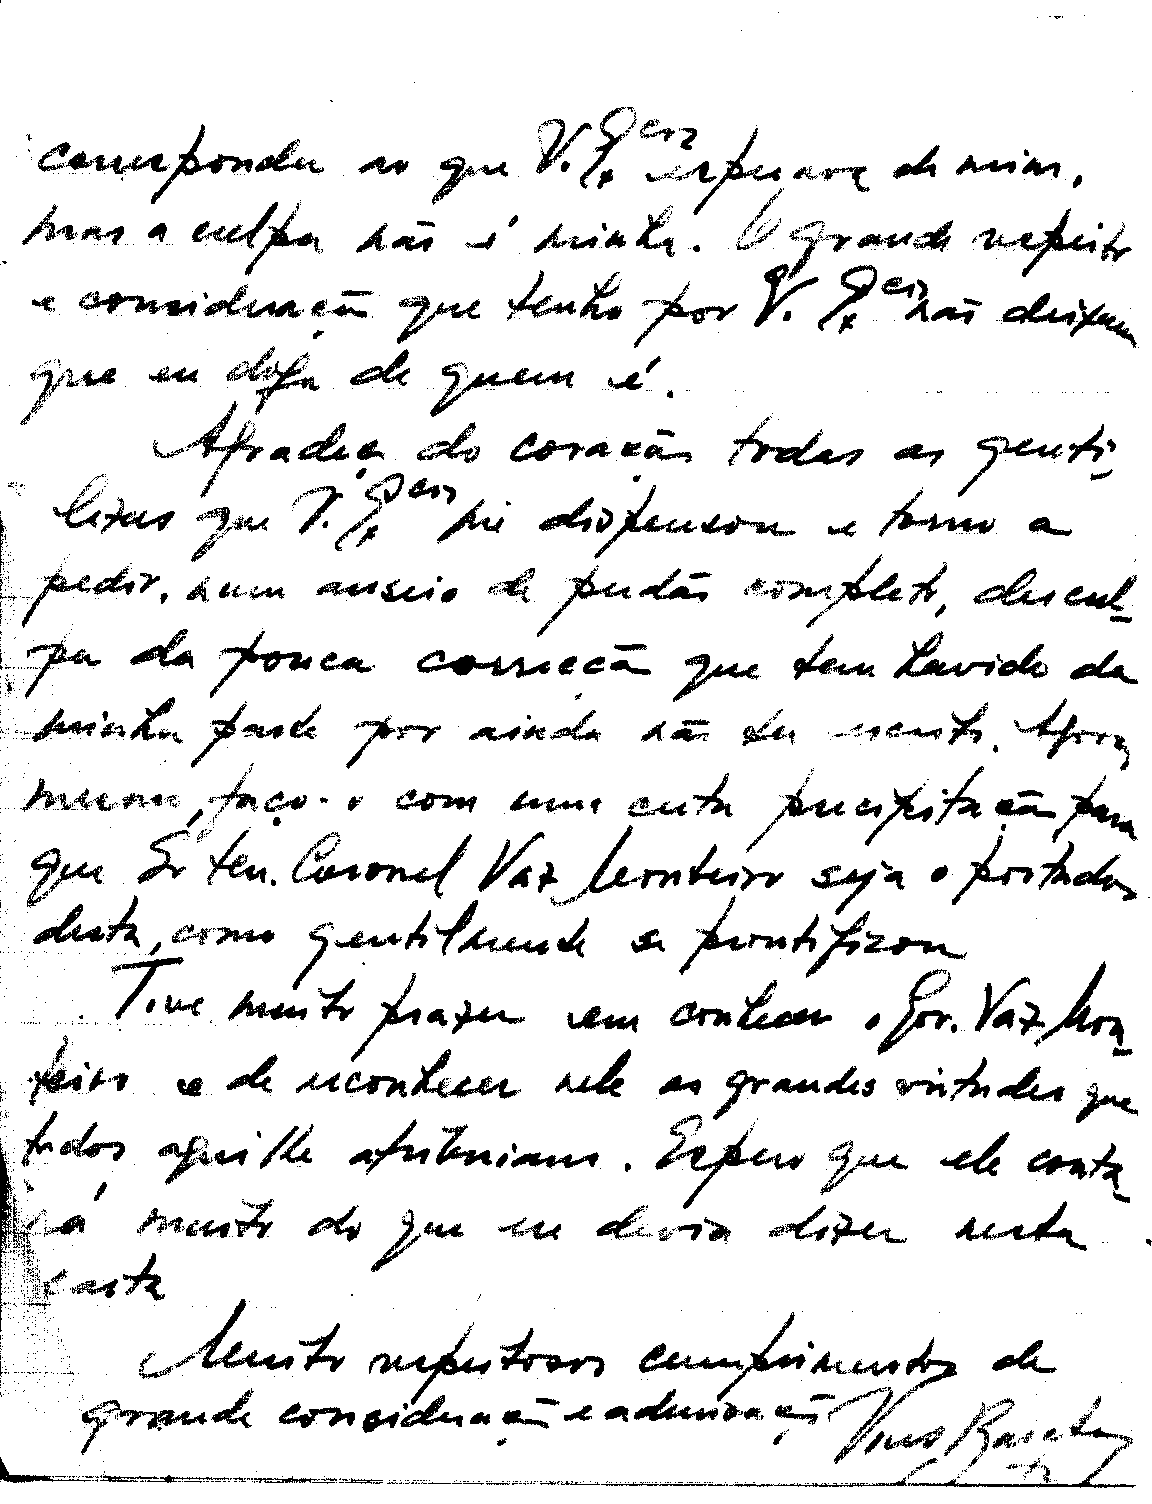 corresponder ao que V. Ex.cia esperava de mim,
mas a culpa não é minha. O grande respeito
e consideração que tenho por V. Ex.cia não deixam
que eu diga de quem é.
Agradeço do coração todas as genti-
lezas que V. Ex.cia me dispensou e torno a
pedir, num anseio de perdão completo, descul-
pa da pouca correcção que tem havido da
minha parte por ainda não ter escrito. Agora
mesmo, faço-o com uma certa precipitação para
que Sr ten. Coronel Vaz Monteiro seja o portador
desta, como gentilmente se prontifizou
Tive muito prazer em conhecer o Gov. Vaz Mon-
teiro e de reconhecer nele as grandes virtudes que
todos aqui lhe atribuiam. Espero que ele conta-
rá muito do que eu devia dizer nesta
carta
Muito respeitosos cumprimentos de
grande consideração e admiração